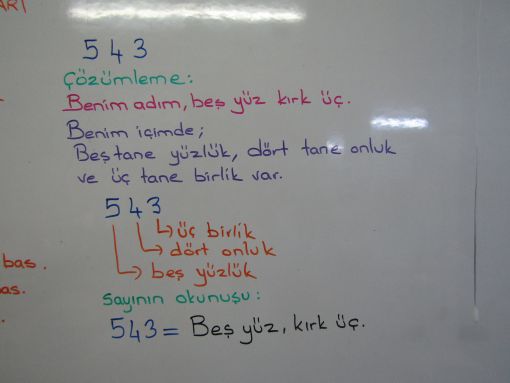 ARI
5 4 3
Çözümleme:
Benim adım, beş yüz kırk üç.
Benim içimde;
Beş tane yüzlük, dört tane onluk
ve üç tane birlik var.
543
üç birlik
dört onluk
beş yüzlük
bas.
as.
Sayının okunuşu:
543 = Beş yüz, kırk üç.